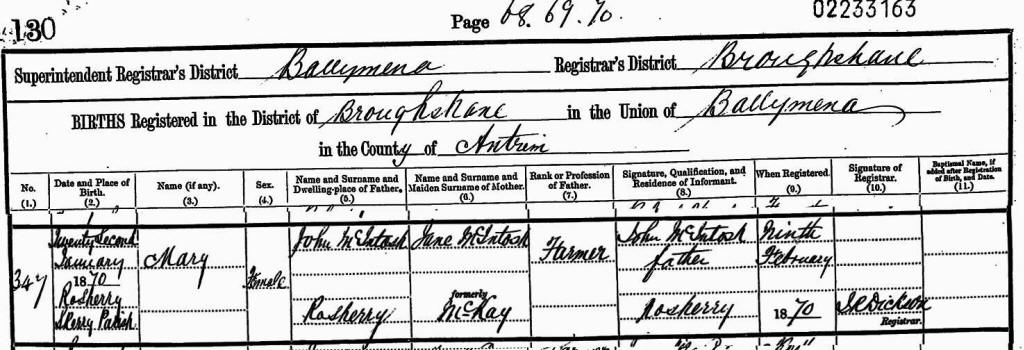 130
Page 68. 69. 70.
02233163
Superintendent Registrar's District Ballymena Registrar's District Broughshane
BIRTHS Registered in the District of Broughshane in the Union of Ballymena
in the County of Antrim
No. (1.)
Date and Place of Birth. (2.)
Name (if any). (3.)
Sex. (4.)
Name and Surname and Dwelling-place of Father. (5.)
Name and Surname and Maiden Surname of Mother. (6.)
Rank or Profession of Father. (7.)
Signature, Qualification, and Residence of Informant. (8.)
When Registered. (9.)
Signature of Registrar. (10.)
Baptismal Name, if added after Registration of Birth, and Date. (11.)
347
Twenty Second
January
1870
Rosherry
Skerry Parish
Mary
Female
John McIntosh
Rosherry
Jane McIntosh
formerly
McKay
Farmer
John McIntosh
father
Rosherry
Ninth
February
1870
Dickson
Registrar.